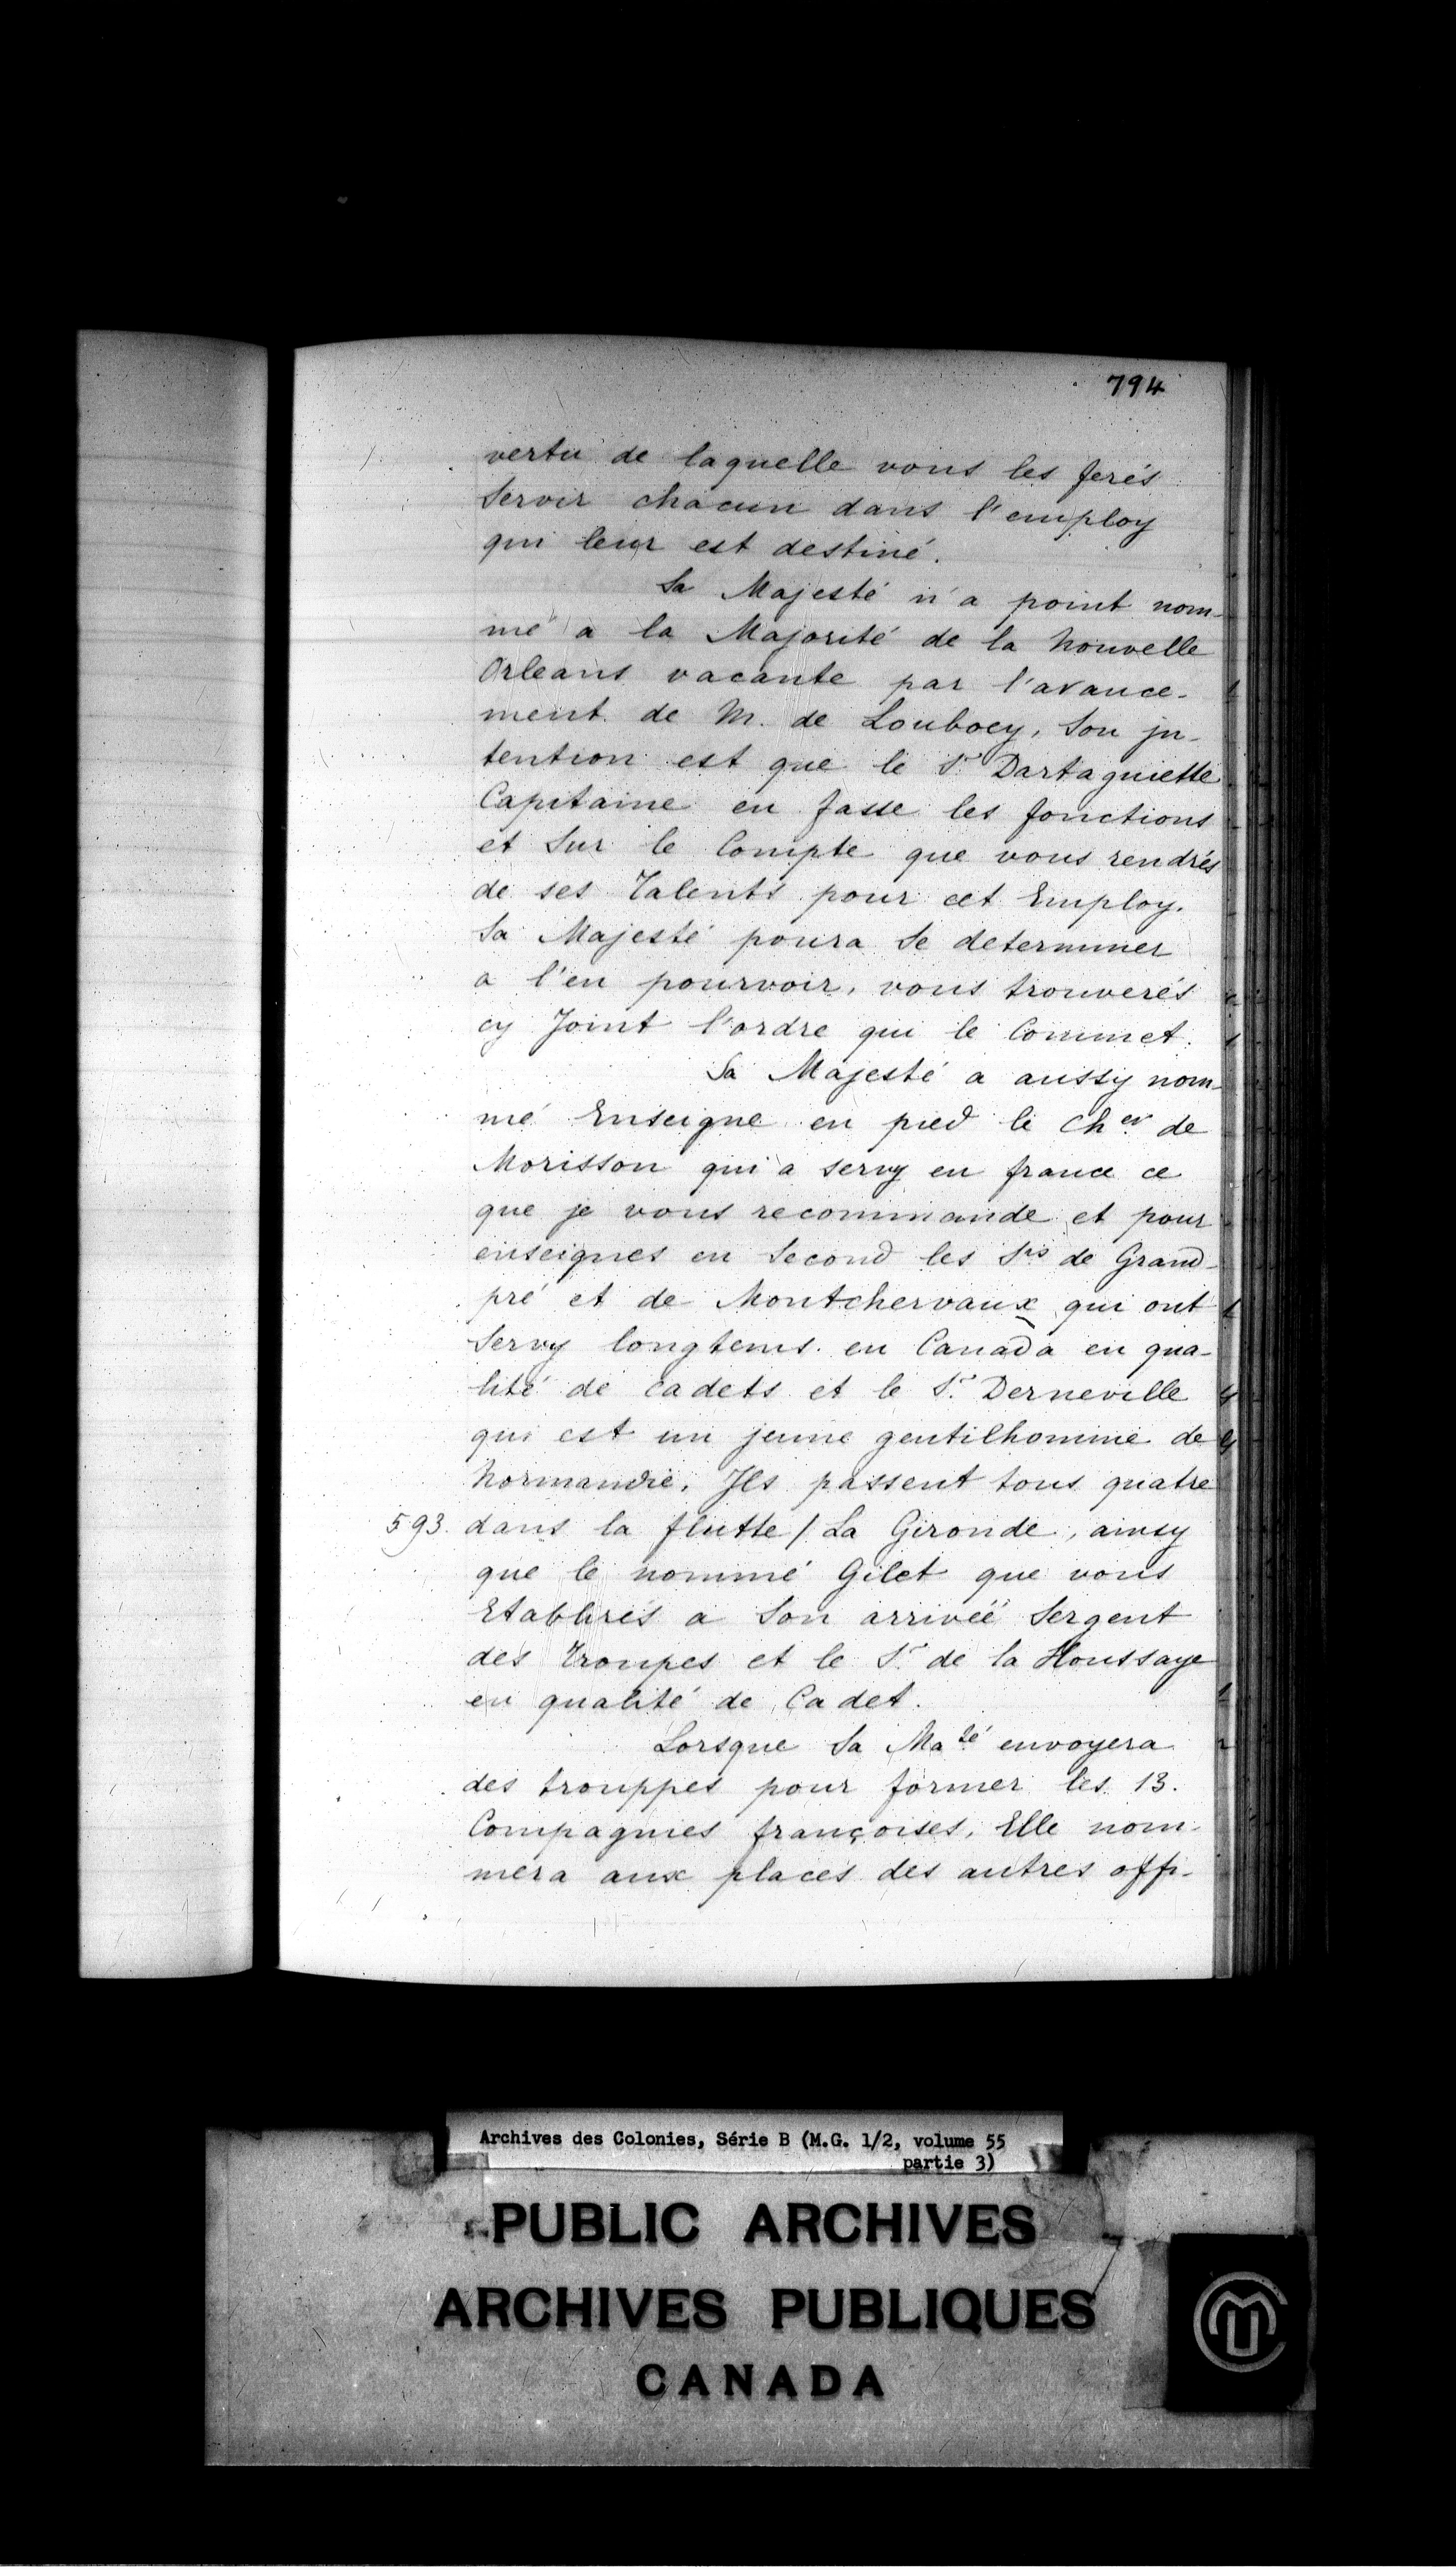 794
vertu de laquelle vous les ferés
Servir chacun dans l'employ
qui leur est destiné.
Sa Majesté n'a point nom-
mé a la Majorité de la Nouvelle
Orleans vacante par l'avance-
ment de M. de Louboey, Son jn-
tention est que le Sr Dartaguiette
Capitaine en fasse les fonctions
et Sur le Compte que vous rendrés
de ses Talents pour cet Employ.
Sa Majesté poura Se determiner
a l'en pourvoir, vous trouverés
cy Joint l'ordre qui le Commet.
Sa Majesté a aussy nom-
mé Enseigne en pied le Cher de
Morisson qui a servy en france ce
que je vous recommande et pour
enseignes en Second les Srs de Grand-
pré et de Montchervaux qui ont
Servy longtems. en Canada en qua-
lité de Cadets et le Sr Derneville
qui est un jeune gentilhomme de
Normandie, Jls passent tous quatre
593. dans la flutte / La Gironde, ainsy
que le nommé Gilet que vous
Etablirés a Son arrivéé Sergent
des Troupes et le Sr de la Houssaye
en qualité de Cadet.
Lorsque Sa Maté envoyera
des trouppes pour former les 13.
Compagnies françoises, Elle nom-
mera aux places des autres offi-
Archives des Colonies, Série B (M.G. 1/2, volume 55
partie 3)
PUBLIC ARCHIVES
ARCHIVES PUBLIQUES
CANADA